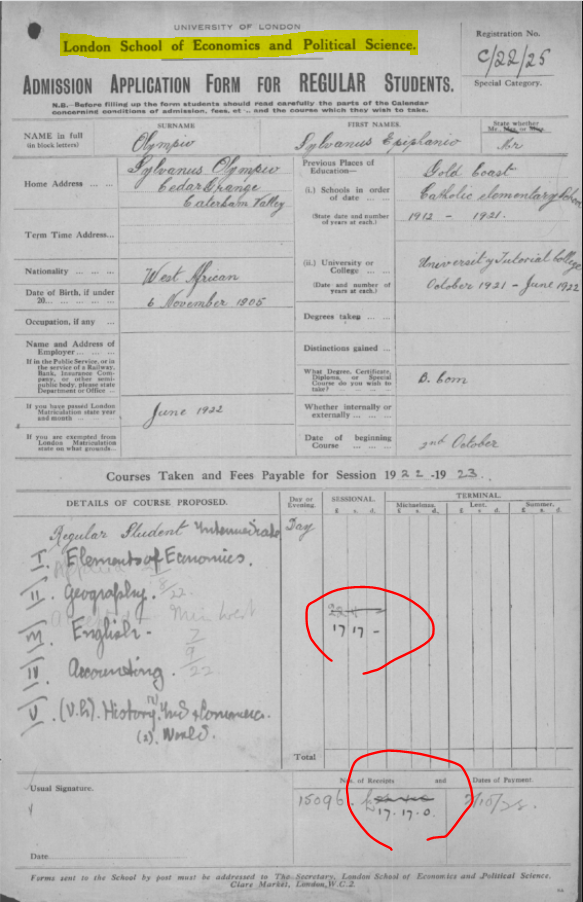 UNIVERSITY OF LONDON
London School of Economics and Political Science.
Registration No.
C/22/25
ADMISSION APPLICATION FORM FOR REGULAR STUDENTS.
Special Category.
N.B.—Before filling up the form students should read carefully the parts of the Calendar
concerning conditions of admission, fees, etc., and the course which they wish to take.
SURNAME
FIRST NAMES.
State whether
Mr., Mrs. or Miss.
NAME in full
(in block letters)
Olympio
Sylvanus Epiphanio
Mr
Home Address
Sylvanus Olympio
Cedar Grange
Caterham Valley
Previous Places of
Education—
(i.) Schools in order
of date
(State date and number
of years at each.)
Gold Coast
Catholic elementary School
1912 - 1921.
Term Time Address
(ii.) University or
College
(Date and number of
years at each.)
University Tutorial College
October 1921 - June 1922
Nationality
West African
Date of Birth, if under
20
6 November 1905
Degrees taken
Occupation, if any
Name and Address of
Employer
If in the Public Service, or in
the service of a Railway,
Bank, Insurance Com-
pany, or other semi-
public body, please state
Department or Office
Distinctions gained
What Degree, Certificate,
Diploma, or Special
Course do you wish to
take?
B. Com
If you have passed London
Matriculation state year
and month
June 1922
Whether internally or
externally
If you are exempted from
London Matriculation
state on what grounds
Date of beginning
Course
2nd October
Courses Taken and Fees Payable for Session 1922-1923.
DETAILS OF COURSE PROPOSED.
Day or
Evening.
SESSIONAL.
£ s. d.
TERMINAL.
Michaelmas.
£ s. d.
Lent.
£ s. d.
Summer.
£ s. d.
Regular Student Intermediate
Day
I. Elements of Economics.
II. Geography.
III. English.
17 17 -
IV. Accounting.
V. (V.h). History (1) Ind & Commerce.
(2). World.
Total
Nos. of Receipts and Dates of Payment.
Usual Signature.
15096
17.17.0
Date
Forms sent to the School by post must be addressed to The Secretary, London School of Economics and Political Science.
Clare Market, London, W.C.2.